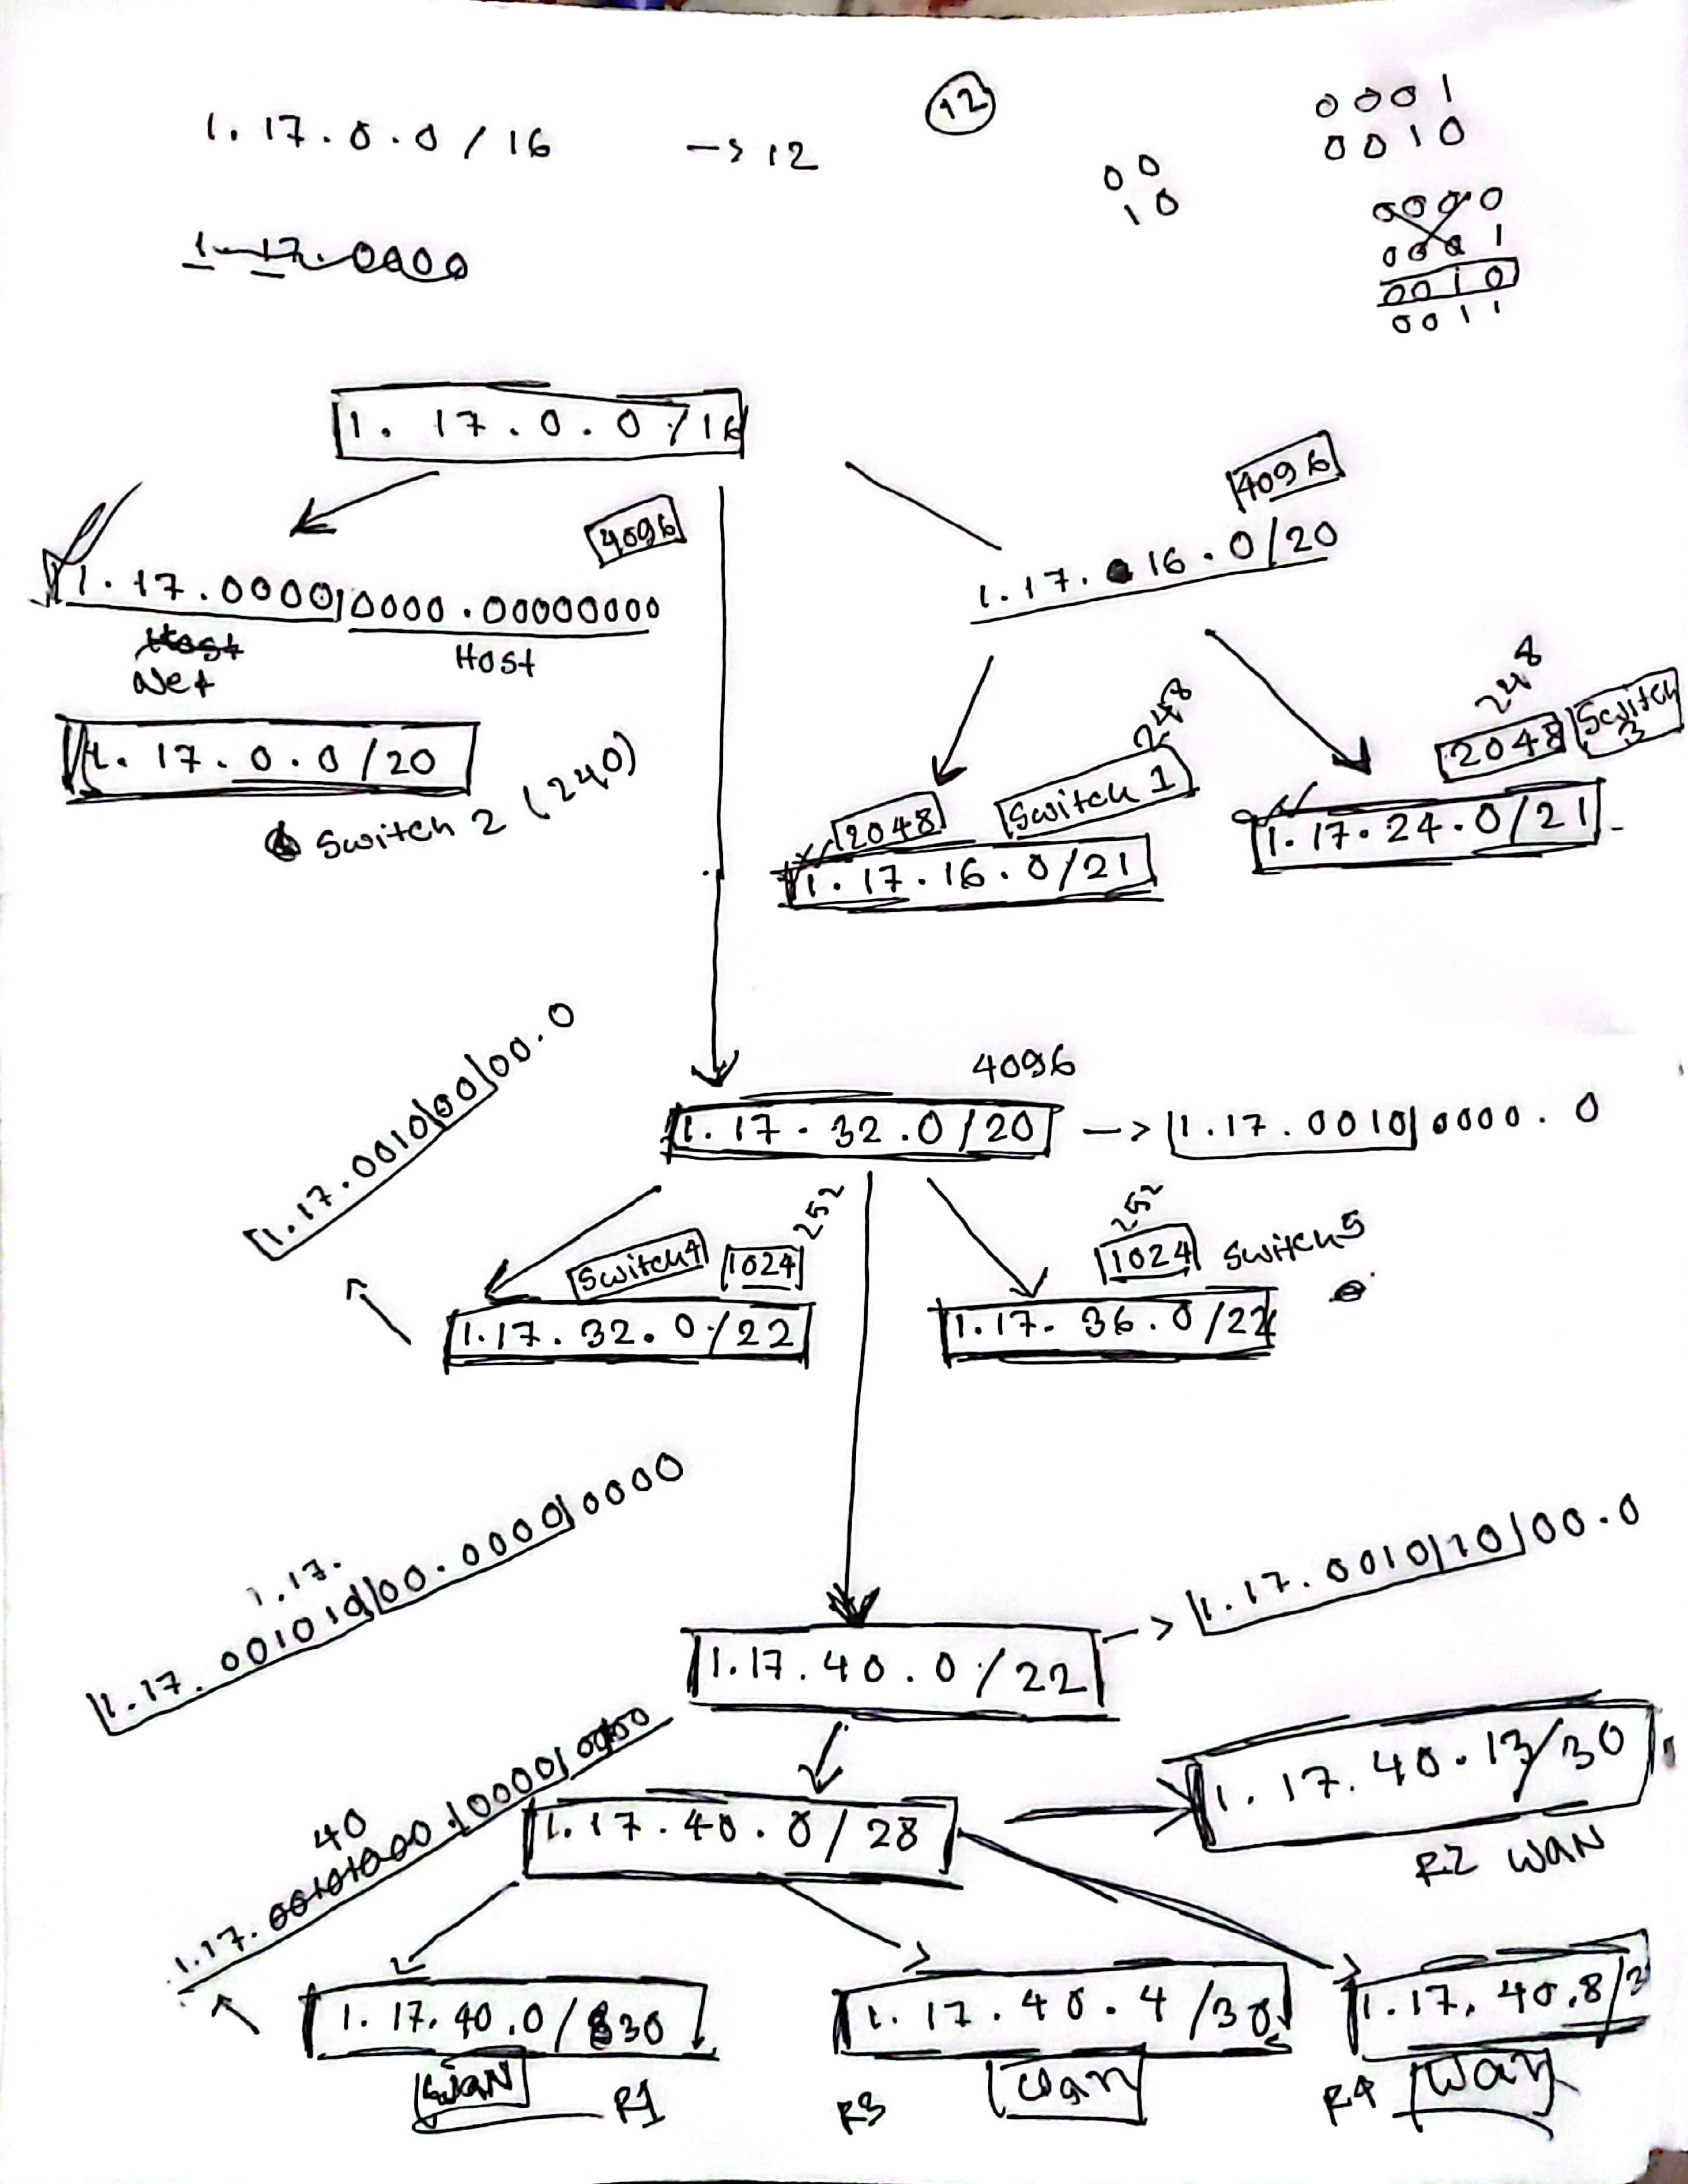 1.17.0.0/16 -> 12
12
00
10
0001
0010
0000
0001
0010
0011
1.17.0000
1.17.0.0/16
4096
1.17.0000|0000.00000000
Host
Net
Host
1.17.0.0/20
Switch 2 (240)
4096
1.17.16.0/20
248
2048 Switch 1
1.17.16.0/21
248
2048 Switch 3
1.17.24.0/21
4096
1.17.32.0/20 -> 1.17.0010|0000.0
1.17.0010|00|00.0
Switch4 1024 252
1.17.32.0/22
252
1024 Switch5
1.17.36.0/22
1.17.40.0/22 -> 1.17.0010|10|00.0
1.17.
1.17.001010|00.0000|0000
1.17.40.0/28
40
1.17.00101000.10000|0000
1.17.40.13/30
R2 WAN
1.17.40.0/30
WAN R1
1.17.40.4/30
R3 Wan
1.17.40.8/3
R4 Wan